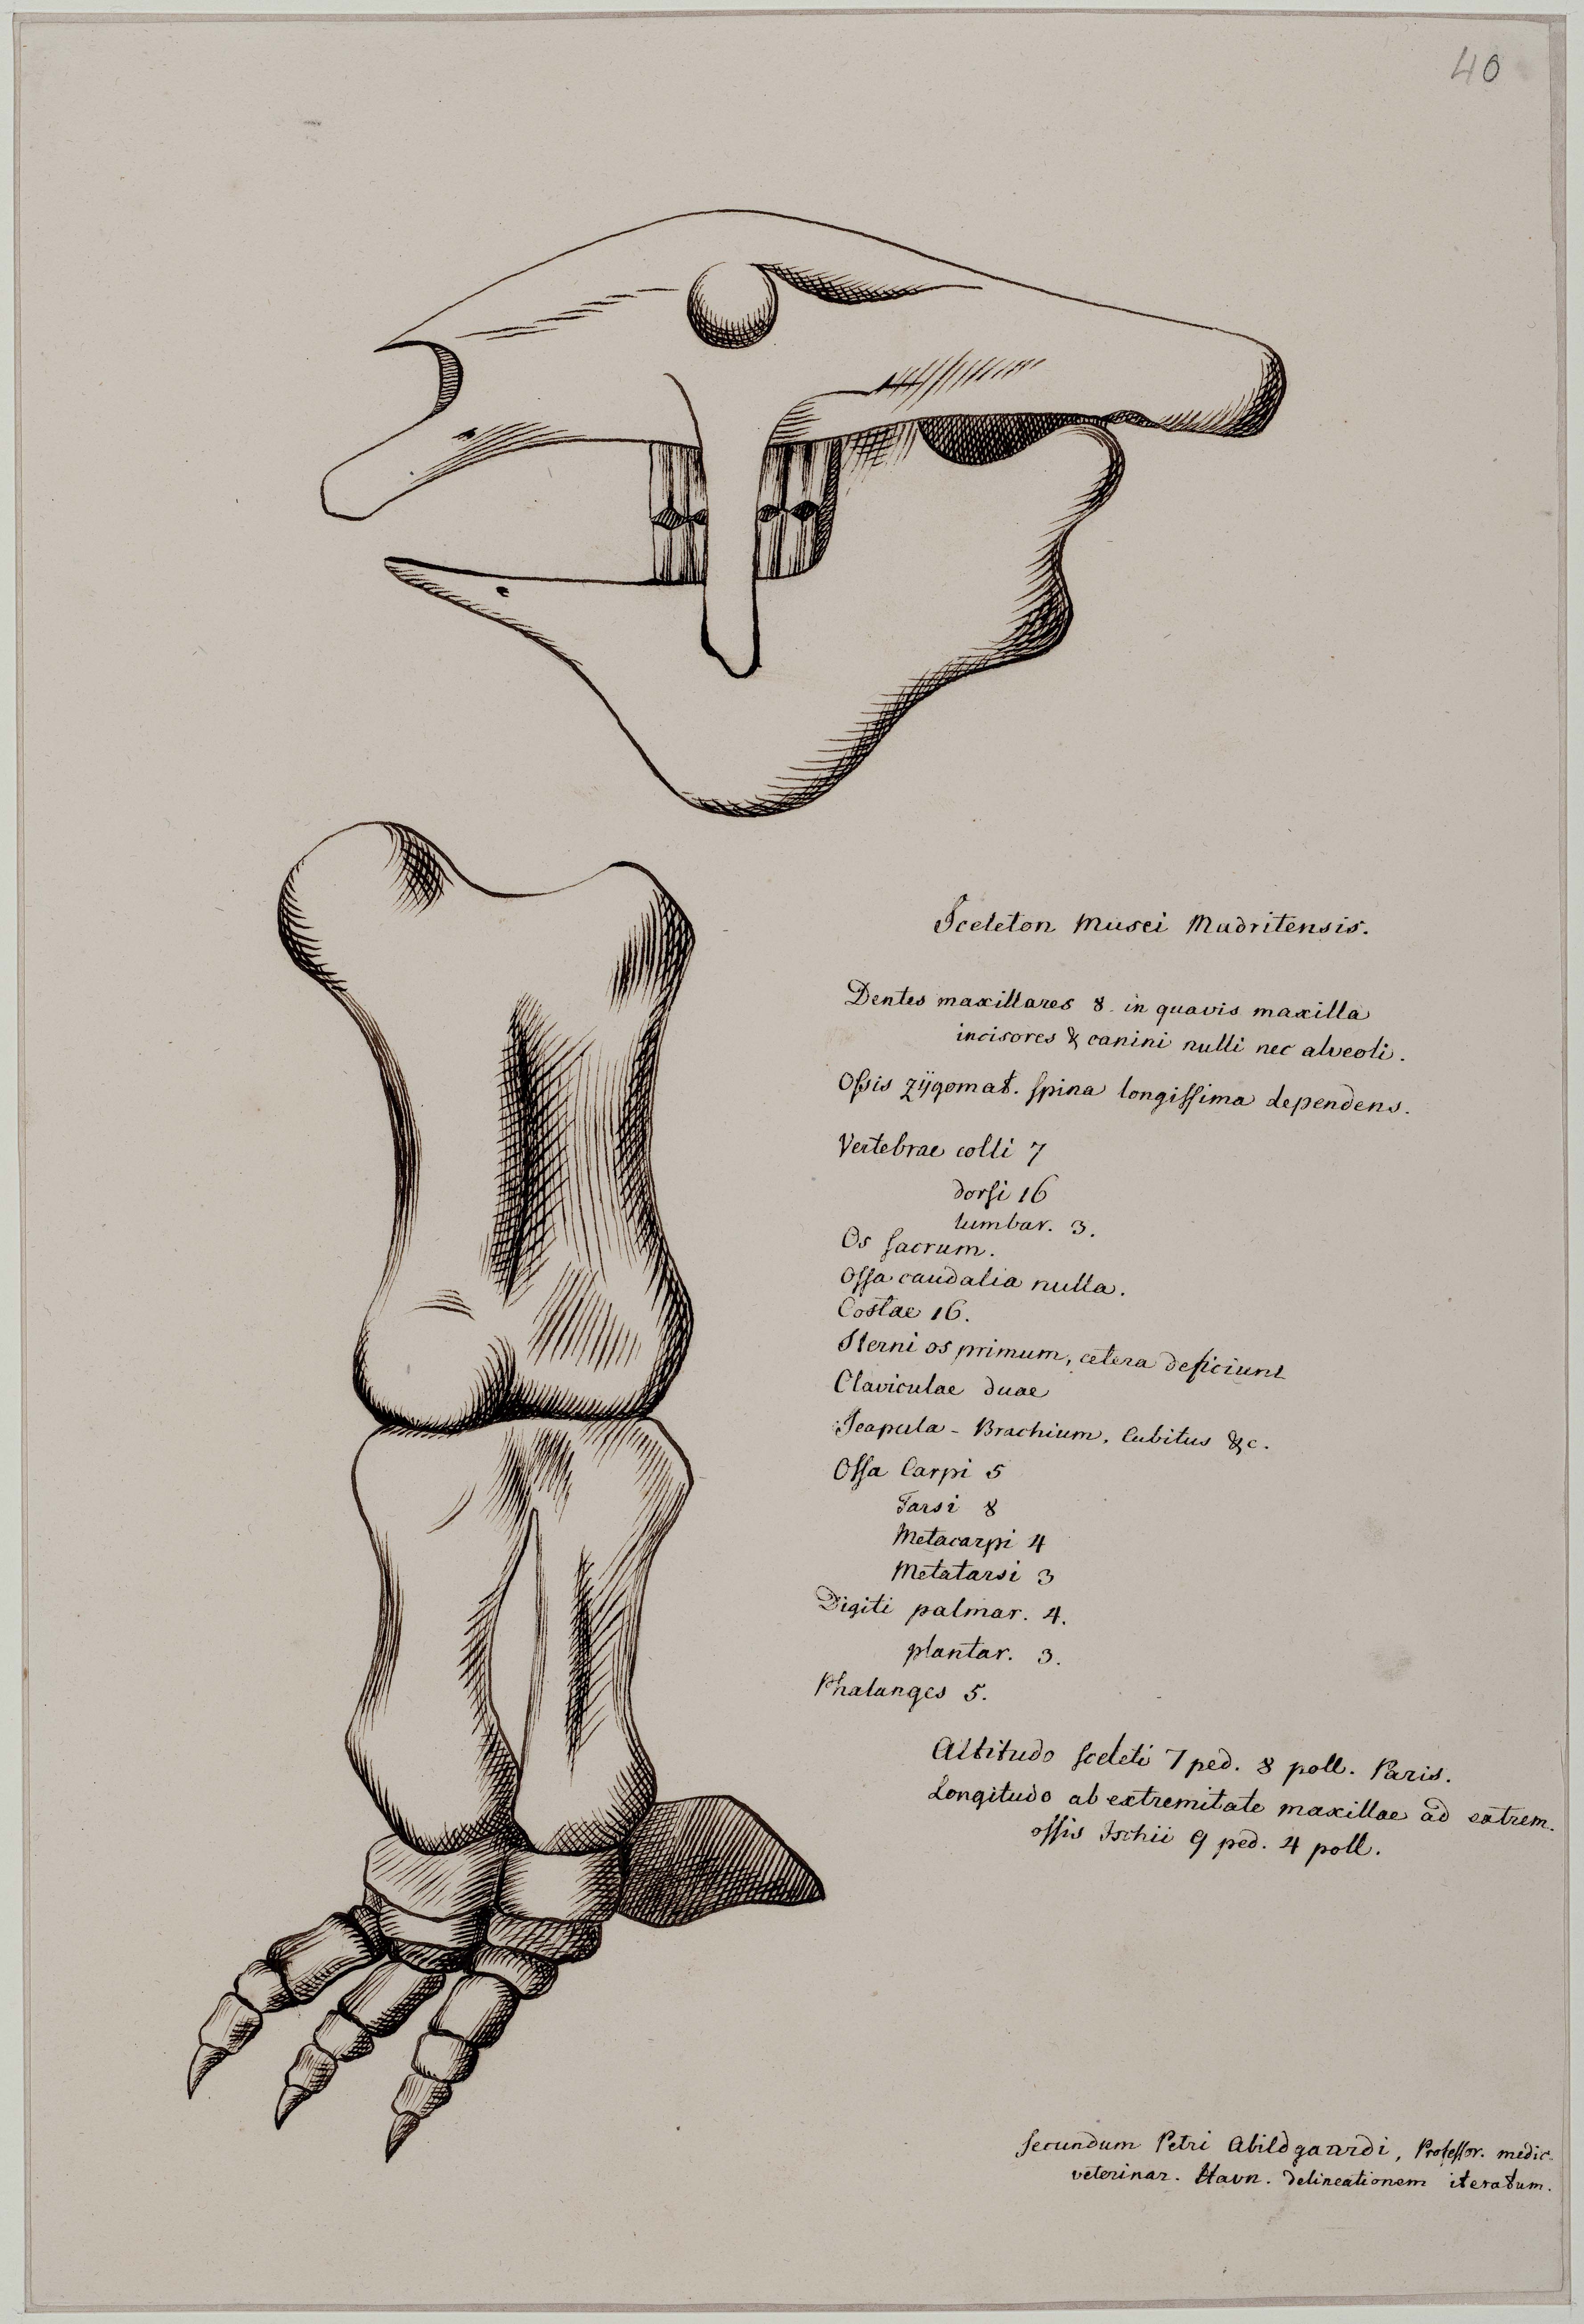 40
Sceleton Musei Madritensis.
Dentes maxillares 8. in quavis maxilla
incisores & canini nulli nec alveoli.
Ossis zÿgomat. spina longissima dependens.
Vertebrae colli 7
dorsi 16
lumbar. 3.
Os sacrum.
Ossa caudalia nulla.
Costae 16.
Sterni os primum, cetera deficiunt
Claviculae duae
Scapula - Brachium. Cubitus &c.
Ossa Carpi 5
Tarsi 8
Metacarpi 4
Metatarsi 3
Digiti palmar. 4.
plantar. 3.
Phalanges 5.
Altitudo sceleti 7 ped. 8 poll. Paris.
Longitudo ab extremitate maxillae ad extrem.
ossis Ischii 9 ped. 4 poll.
secundum Petri Abildgaardi, Professor. medic.
veterinar. Havn. delineationem iteratum.